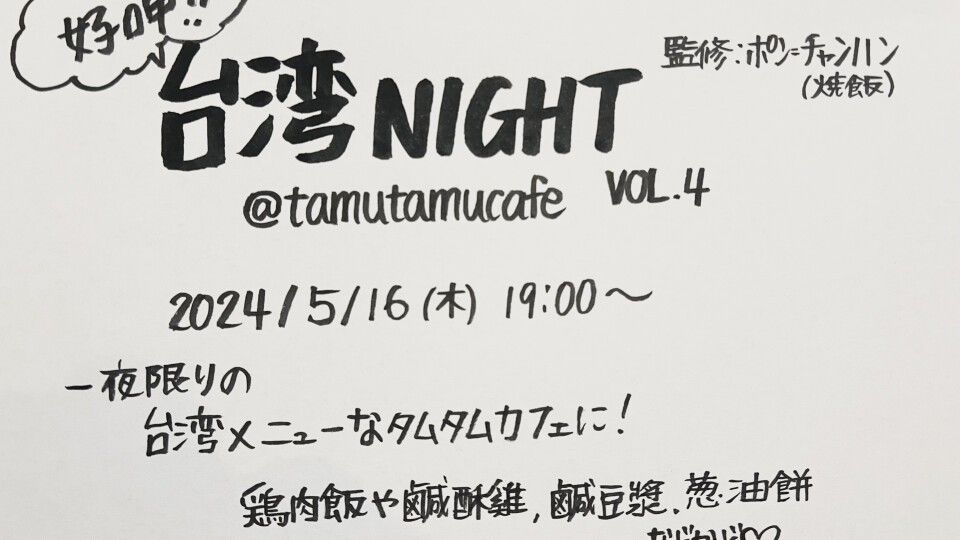 好呷!!
台湾NIGHT
監修:ポン=チャンハン
(焼飯)
@tamutamucafe VOL.4
2024/5/16(木) 19:00〜
一夜限りの
台湾メニューなタムタムカフェに!
鶏肉飯や鹹酥雞,鹹豆漿,葱油餅